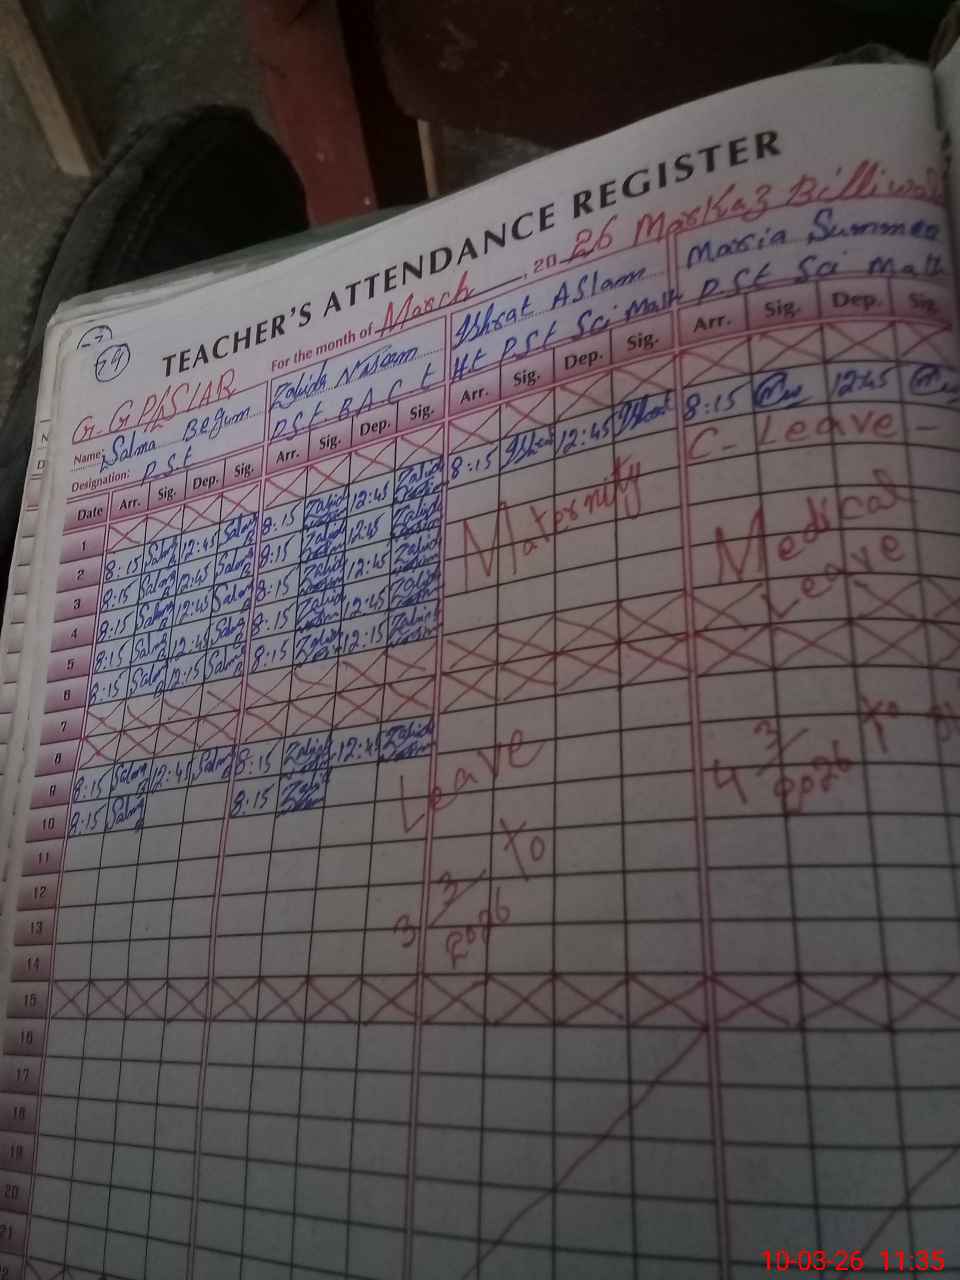 TEACHER'S ATTENDANCE REGISTER
For the month of March, 2026 Markaz
79
Name: Salma Begum
Zahida Nasim
Ishrat Aslam
Designation: PSt
Ht PSt Sci Math
PSt Sci Math
Date Arr. Sig. Dep. Sig. Arr. Sig. Dep. Sig. Arr. Sig. Dep. Sig. Arr. Sig. Dep. Sig.
1
2 8:15 Salma 12:45 Salma 8:15 Zahida 12:45 Zahida 8:15 Ishrat 12:45 Ishrat 8:15 12:45
3 8:15 Salma 12:45 Salma 8:15 Zahida 12:45 Zahida C- Leave -
4 8:15 Salma 12:45 Salma 8:15 Zahida 12:45 Zahida
5 8:15 Salma 12:45 Salma 8:15 Zahida 12:45 Zahida
6 8:15 Salma 12:15 Salma 8:15 Zahida 12:15 Zahida
7
8
9 8:15 Salma 12:45 Salma 8:15 Zahida 12:45 Zahida
10 8:15 Salma 8:15
11
12
13
14
15
16
17
18
19
20
21
Maternity
Leave
3 3/2026 to
Medical
Leave
4 3/2026 to
10-03-26 11:35